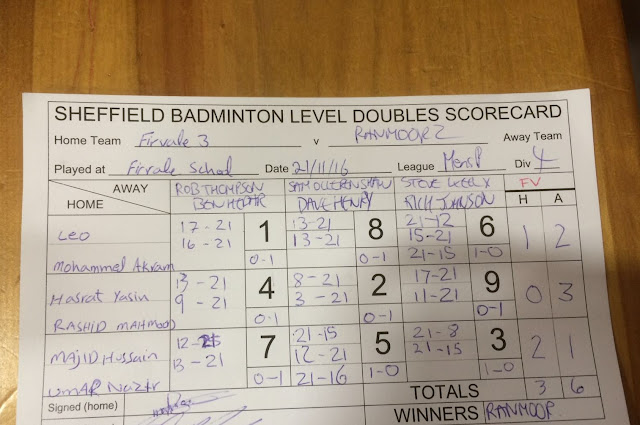 SHEFFIELD BADMINTON LEVEL DOUBLES SCORECARD
Home Team Firvale 3 v RANMOOR 2 Away Team
Played at Firvale School Date 21/11/16 League Mens Div 4
AWAY ROB THOMPSON SAM OLLERENSHAW STEVE FV
HOME BEN DAVE HENRY RICH H A
Leo 17-21 1 13-21 8 21-12 6 1 2
16-21 13-21 15-21
Mohammed Akram 0-1 0-1 21-15 1-0
Hasrat Yasin 13-21 4 8-21 2 17-21 9 0 3
9-21 3-21 11-21
RASHID MAHMOOD 0-1 0-1 0-1
MAJID Hussain 12-21 7 21-15 5 21-8 3 2 1
13-21 12-21 21-15
UMAR Nazir 0-1 21-16 1-0 1-0
Signed (home) TOTALS 3 6
WINNERS RANMOOR